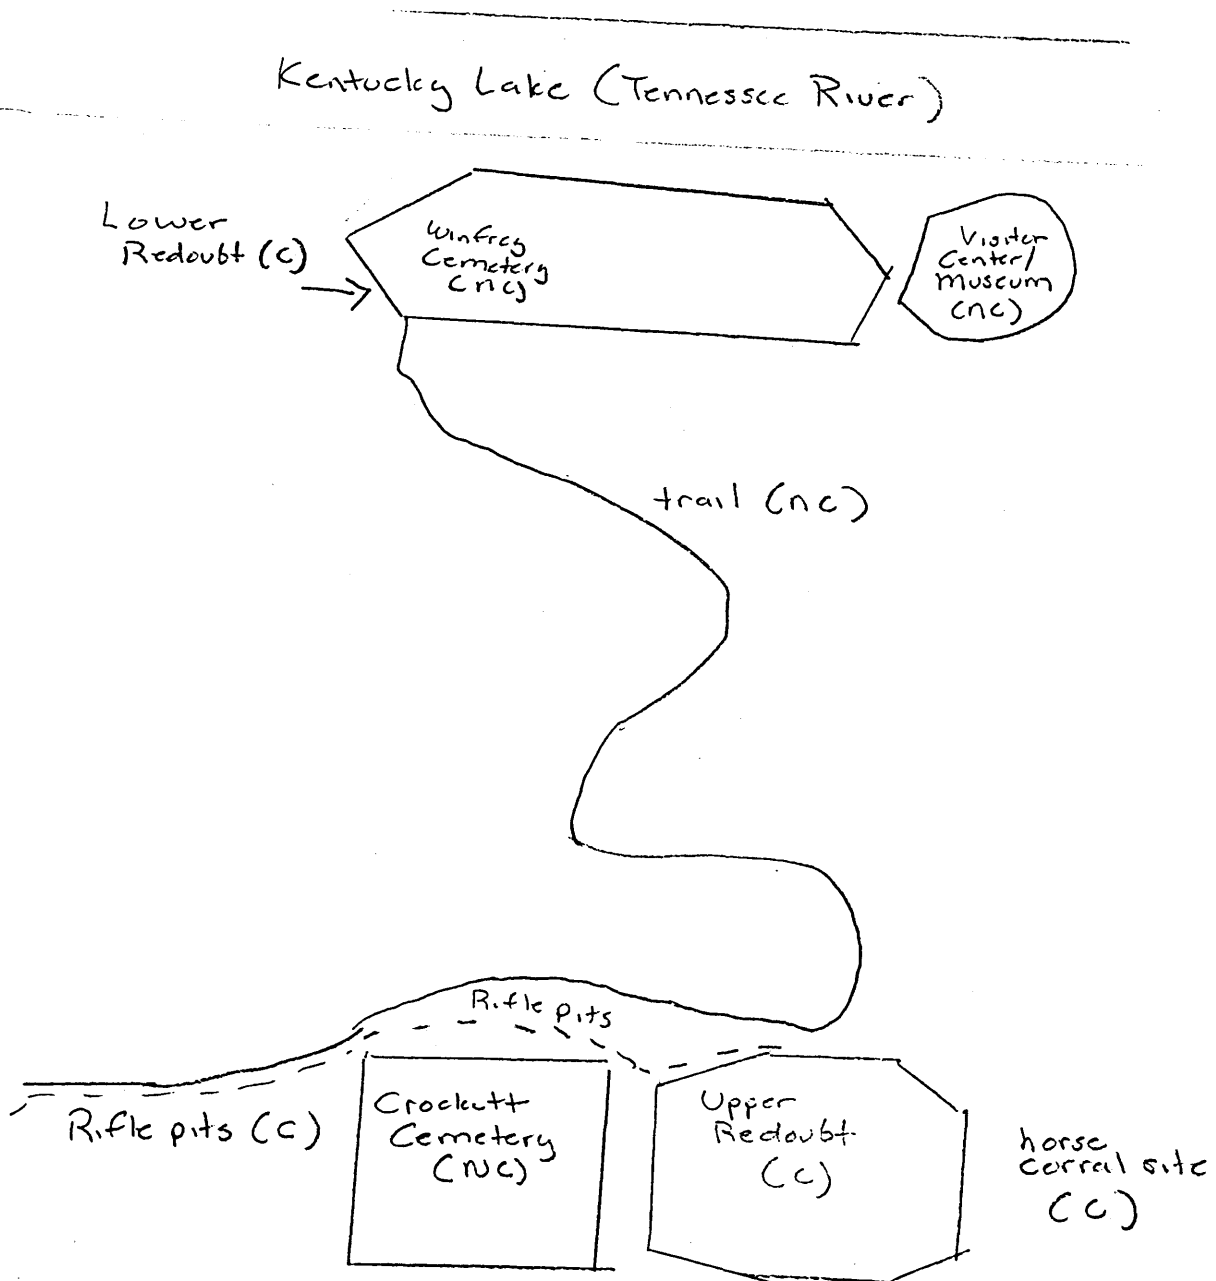 Kentucky Lake (Tennessee River)
Lower
Redoubt (c)
Winfrey
Cemetery
(nc)
Visiter
Center/
Museum
(nc)
trail (nc)
Rifle pits
Rifle pits (c)
Crockett
Cemetery
(NC)
Upper
Redoubt
(c)
horse
corral site
(c)